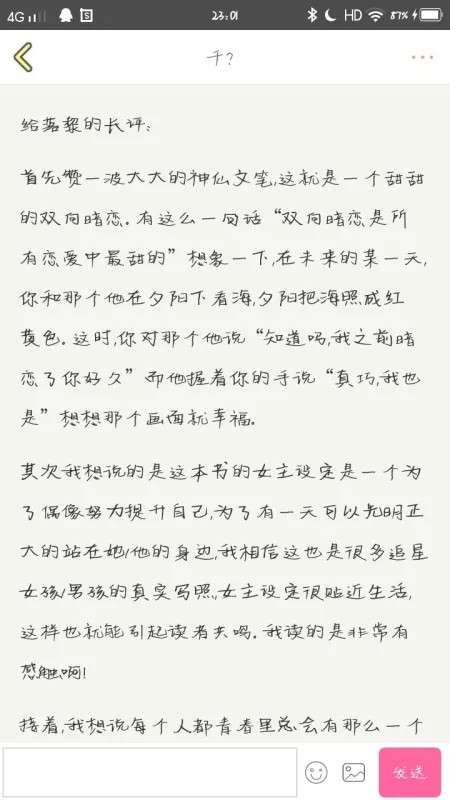 4G 23:01 HD 87%
千？
给落黎的长评：
首先赞一波大大的神仙文笔,这就是一个甜甜
的双向暗恋. 有这么一句话“双向暗恋是所
有恋爱中最甜的”想象一下,在未来的某一天,
你和那个他在夕阳下看海,夕阳把海照成红
黄色. 这时,你对那个他说“知道吗,我之前暗
恋了你好久”而他握着你的手说“真巧,我也
是”想想那个画面就幸福.
其次我想说的是这本书的女主设定是一个为
了偶像努力提升自己,为了有一天可以光明正
大的站在她/他的身边,我相信这也是很多追星
女孩/男孩的真实写照,女主设定很贴近生活,
这样也就能引起读者共鸣. 我读的是非常有
感触啊!
接着,我想说每个人都青春里总会有那么一个
发送